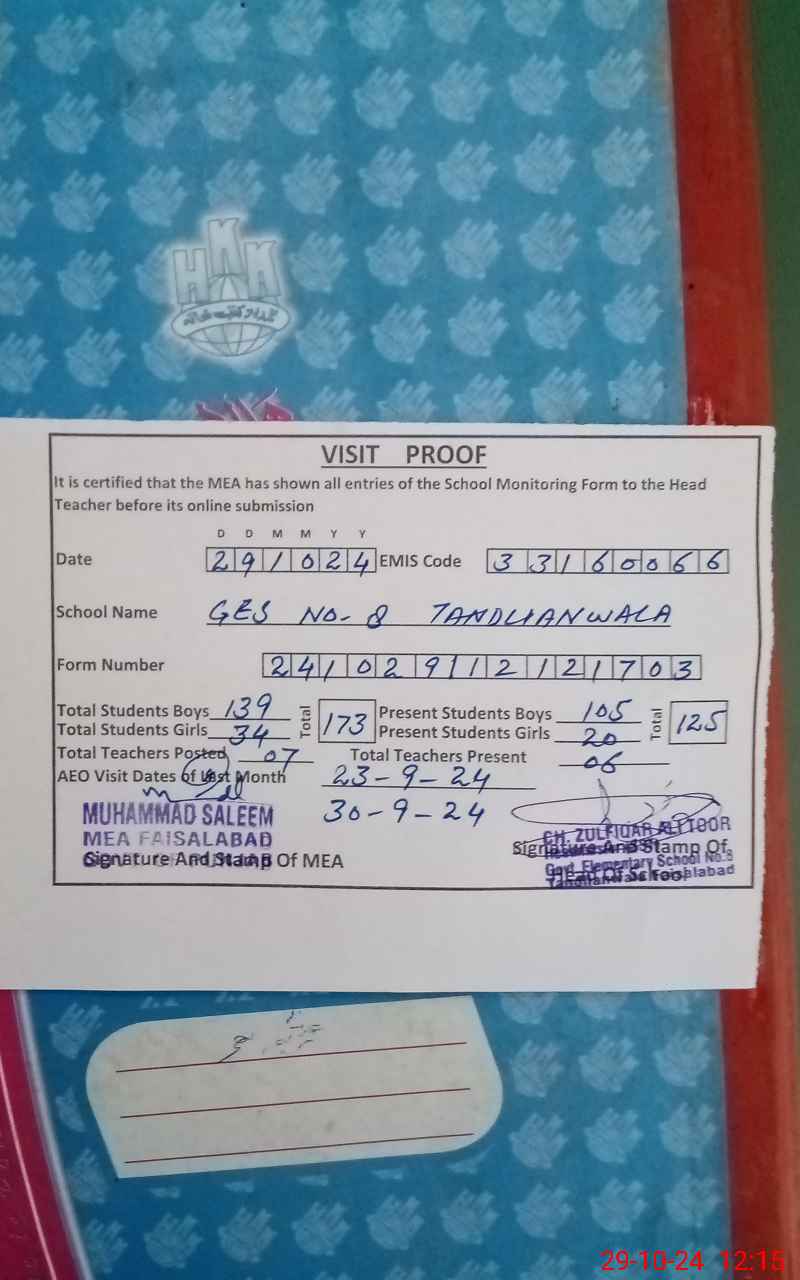 HKK
VISIT PROOF
It is certified that the MEA has shown all entries of the School Monitoring Form to the Head
Teacher before its online submission
D D M M Y Y
Date 291024 EMIS Code 33160066
School Name GES NO-8 TANDLIANWALA
Form Number 241029112121703
Total Students Boys 139 Total 173 Present Students Boys 105 Total 125
Total Students Girls 34 Present Students Girls 20
Total Teachers Posted 07 Total Teachers Present 06
AEO Visit Dates of Last Month 23-9-24
30-9-24
MUHAMMAD SALEEM
MEA FAISALABAD
Signature And Stamp Of MEA
CH. ZULFIQAR ALI TOOR
Signature And Stamp Of
Govt. Elementary School No.8
Head Of School
Tandlianwala Faisalabad
29-10-24 12:15